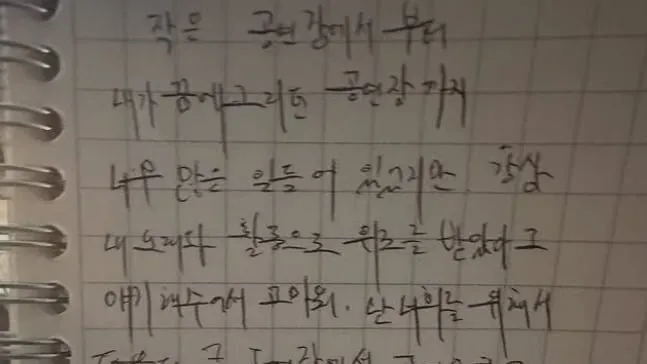 작은 공연장에서 부터
내가 꿈에그리던 공연장 까지
너무 많은 일들이 있었지만 항상
내 노래와 활동으로 위로를 받았다고
얘기해주어서 고마워. 난 너희를 위해서